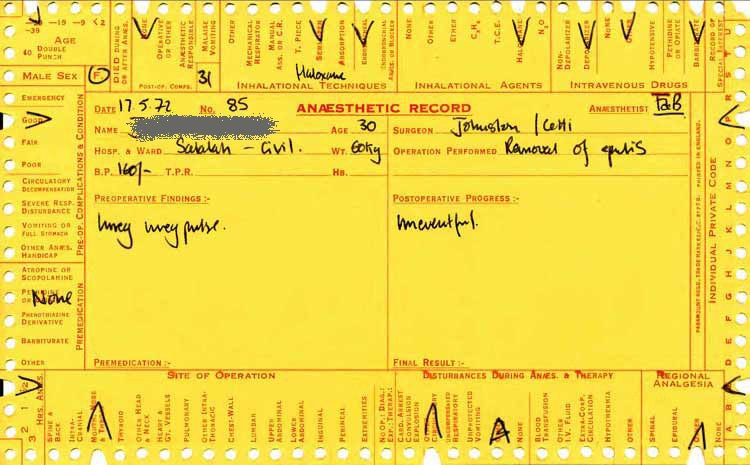 -39 -19 -9 <2
AGE
40 DOUBLE PUNCH
MALE SEX F.
DIED DURING OR AFTER ANÆS.
NONE
OPERATIVE OR OTHER
ANÆSTHETIC RESPONSIBLE
MALAISE VOMITING
OTHER
POST-OP. COMPS. 31
MECHANICAL RESPIRATOR
MANUAL ASS. OR C.R.
T. PIECE
ABSORPTION
INHALATIONAL TECHNIQUES
NONE
OTHER
ETHER
C₃H₆
T.C.E.
HALOTHANE
N₂O
INHALATIONAL AGENTS
NON-DEPOLARIZER
DEPOLARIZER
NONE
OTHER
HYPOTENSIVE
PETHIDINE OR OPIATE
BARBITURATE
INTRAVENOUS DRUGS
RECORD OF SPECIAL INTEREST
EMERGENCY
GOOD
FAIR
POOR
CIRCULATORY DECOMPENSATION
SEVERE RESP. DISTURBANCE
VOMITING OR FULL STOMACH
OTHER ANÆS. HANDICAP
PRE-OP. COMPLICATIONS & CONDITION
ATROPINE OR SCOPOLAMINE
None
PHENOTHIAZINE DERIVATIVE
BARBITURATE
OTHER
PREMEDICATION
DATE 17.5.72 No. 85 ANÆSTHETIC RECORD ANÆSTHETIST
NAME AGE 30 SURGEON Johnston / Cetti
HOSP. & WARD Salalah - Civil. WT. 60kg OPERATION PERFORMED Removal of epulis
B.P. 160/- T.P.R. HB.
PREOPERATIVE FINDINGS :- POSTOPERATIVE PROGRESS :-
pulse. Uneventful.
PREMEDICATION :- FINAL RESULT :-
INDIVIDUAL PRIVATE CODE
PRINTED IN ENGLAND.
HRS. ANÆS.
3 2 1 ½
SITE OF OPERATION
SPINE & BACK
INTRA-CRANIAL
MOUTH NOSE THROAT
THYROID
OTHER HEAD & NECK
HEART & GT. VESSELS
PULMONARY
OTHER INTRA-THORACIC
CHEST-WALL
LUMBAR
UPPER ABDOMINAL
LOWER ABDOMINAL
INGUINAL
PERINEAL
EXTREMITIES
N/OP.: DIAG.: EXP.: THERAP.:
DISTURBANCES DURING ANÆS. & THERAPY
CARD. ARREST CONVULSION EXPLOSION
UNPROVOKED VOMITING
NONE
BLOOD TRANSFUSION
OTHER I.V. FLUID
EXTRA-CORP. CIRCULATION
HYPOTHERMIA
OTHER
REGIONAL ANALGESIA
SPINAL
EPIDURAL
OTHER
NONE